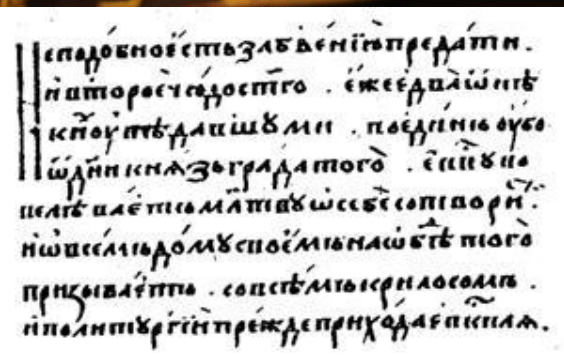 Неподо́бноє҆́стьзабве́нїюпреда́ти.
и҆второ́ечю́дост҃го . є҆́жеє҆два̀ѿнѣ
кн҃оу҆вѣ́давшꙋми . поє҆ди́ною оу҆бо
ѿдн҃и кнѧ́зьгра́датого̀ . є҆п҃пꙋпо
велѣва́етъмл҃твꙋѡ҆себѐсотвори́т.
и҆ѡ҆всемъдо́мꙋсвоє́мънаѡ҆бѣ́дтого̀
призыва́етъ . совсѣ́мъкрилосомъ .
и҆политꙋргі́ипре́ждеприхо́даеп҃кплѧ.